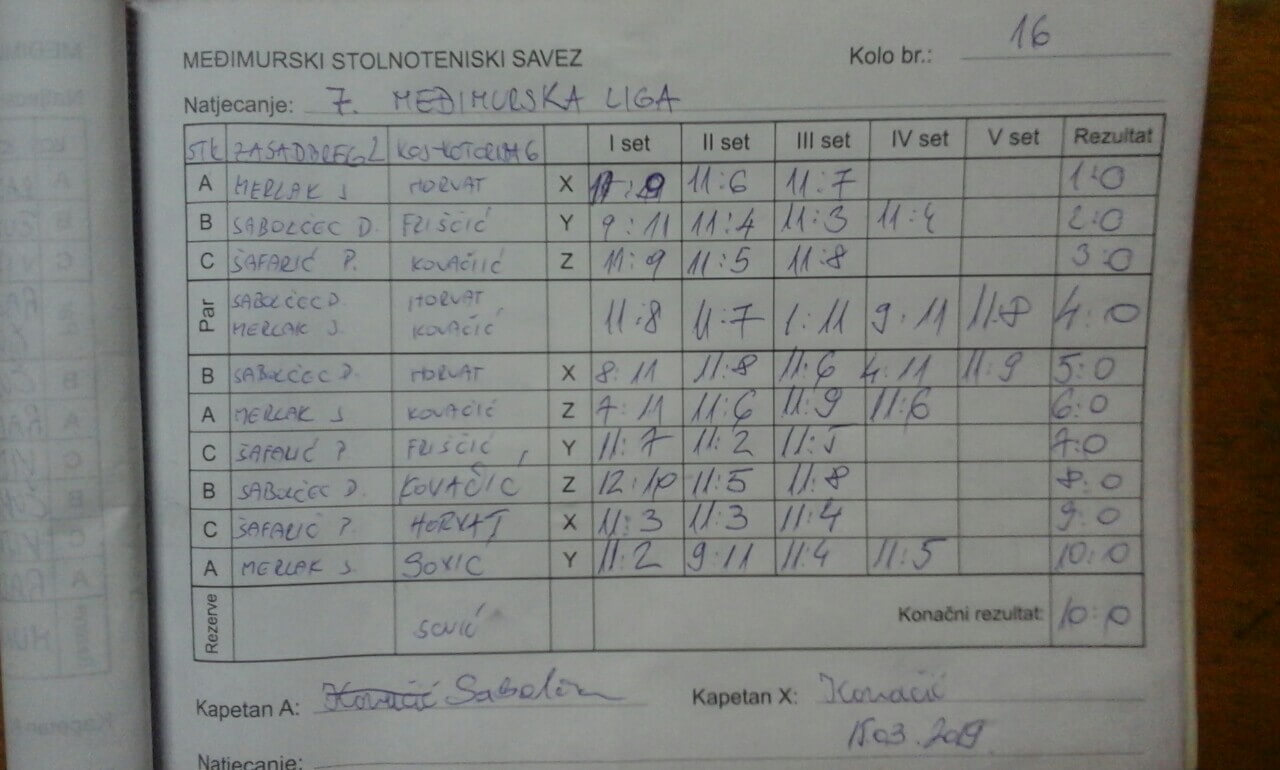 MEĐIMURSKI STOLNOTENISKI SAVEZ
Kolo br.: 16
Natjecanje: 7. MEĐIMURSKA LIGA
STK I set II set III set IV set V set Rezultat
A MERLAK J. HORVAT X 11:6 11:7 1:0
B SABOLČEC D. FRIŠČIĆ Y 9:11 11:4 11:3 11:4 2:0
C ŠAFARIĆ P. KOVAČIĆ Z 11:9 11:5 11:8 3:0
Par SABOLČEC D. HORVAT
MERLAK J. KOVAČIĆ 11:8 11:7 1:11 9:11 11:8 4:0
B SABOLČEC D. HORVAT X 8:11 11:8 11:6 4:11 11:9 5:0
A MERLAK J. KOVAČIĆ Z 7:11 11:6 11:9 11:6 6:0
C ŠAFARIĆ P. FRIŠČIĆ Y 11:7 11:2 11:5 7:0
B SABOLČEC D. KOVAČIĆ Z 12:10 11:5 11:8 8:0
C ŠAFARIĆ P. HORVAT X 11:3 11:3 11:4 9:0
A MERLAK J. Y 11:2 9:11 11:4 11:5 10:0
Rezerve Konačni rezultat: 10:0
Kapetan A: Kovačić Kapetan X: Kovačić
15.03.2019
Natjecanje: